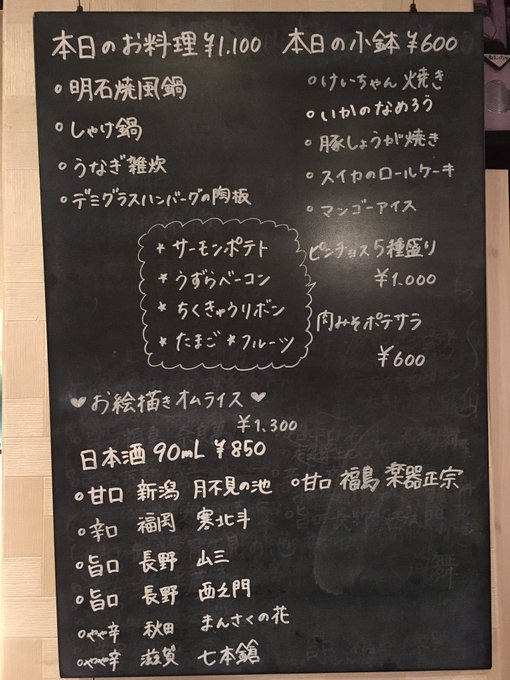 本日のお料理 ¥1.100
○明石焼風鍋
○しゃけ鍋
○うなぎ雑炊
○デミグラスハンバーグの陶板
本日の小鉢 ¥600
○けいちゃん焼き
○いかのなめろう
○豚しょうが焼き
○スイカのロールケーキ
○マンゴーアイス
ピンチョス5種盛り
¥1.000
★サーモンポテト
★うずらベーコン
★ちくきゅうリボン
★たまご★フルーツ
肉みそポテサラ
¥600
♥お絵描きオムライス♥
¥1.300
日本酒 90mL ¥850
○甘口 新潟 月不見の池
○甘口 福島 楽器正宗
○辛口 福岡 寒北斗
○旨口 長野 山三
○旨口 長野 西之門
○やや辛 秋田 まんさくの花
○やや辛 滋賀 七本鎗